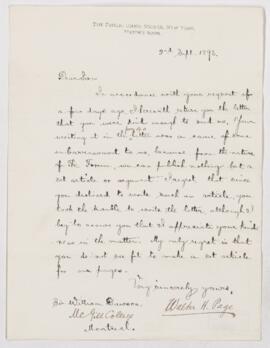 The Forum, Union Square, New York,
Editor's Room.
2nd Sept. 1892.
Dear Sir:
In accordance with your request of
a few days ago I herewith return you the letter
that you were kind enough to send me. Your
writing it in the letter was a cause of some
embarrassment to me, because from the nature
of The Forum, we can publish nothing but a
set article or argument. I regret that since
you declined to make such an article, you
took the trouble to write the letter, although I
beg to assure you that I appreciate your kind-
ness in the matter. My only regret is that
you do not see fit to make a set article
for our pages.
Very sincerely yours,
Walter H. Page
Sir William Dawson,
McGill College
Montreal.